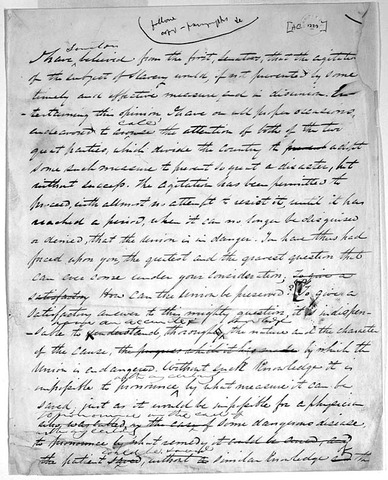 follow
copy - paragraphs &c
[AC III]
Senators
I have believed from the first, senators, that the agitation
of the subject of slavery would, if not prevented by some
timely and effective measure end in disunion. En-
-tertaining this opinion, I have on all proper occasions,
endeavored to arouse the attention of both of the two
great parties, which divide the country to adopt
some such measure to prevent so great a disaster, but
without success. The agitation has been permitted to
proceed, with allmost no attempt to resist it, until it has
reached a period, when it can no longer be disguised
or denied, that the Union is in danger. You have thus had
forced upon you, the greatest and the gravest question that
can ever come under your consideration, to give a
satisfactory How can the Union be preserved? To give a
satisfactory answer to this mighty question, it is indispen-
sable to have an accurate & thorough knowledge
understand, through the nature and the character
of the cause, by which the
Union is endangered. Without such Knowledge it is
impossible to pronounce by what measure it can be
saved, just as it would be impossible for a physician
to pronounce in the case of some dangerous disease
to pronounce by what remedy it could be cured, and
the patient saved, without similar Knowledge and the